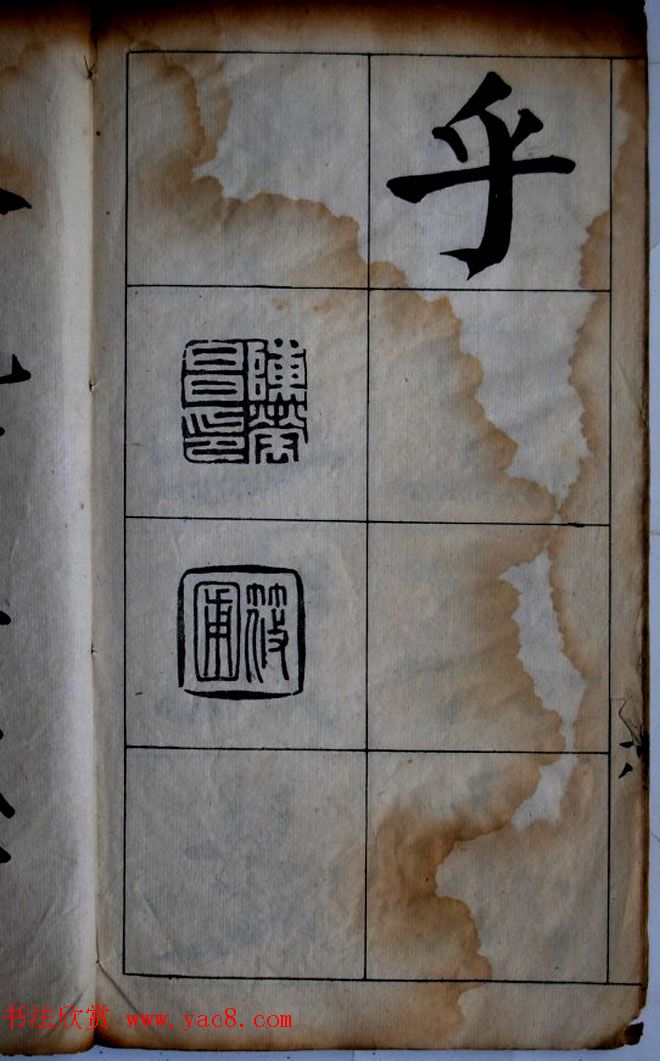 乎
陳榮昌印
筱圃
六
书法欣赏 www.yac8.com